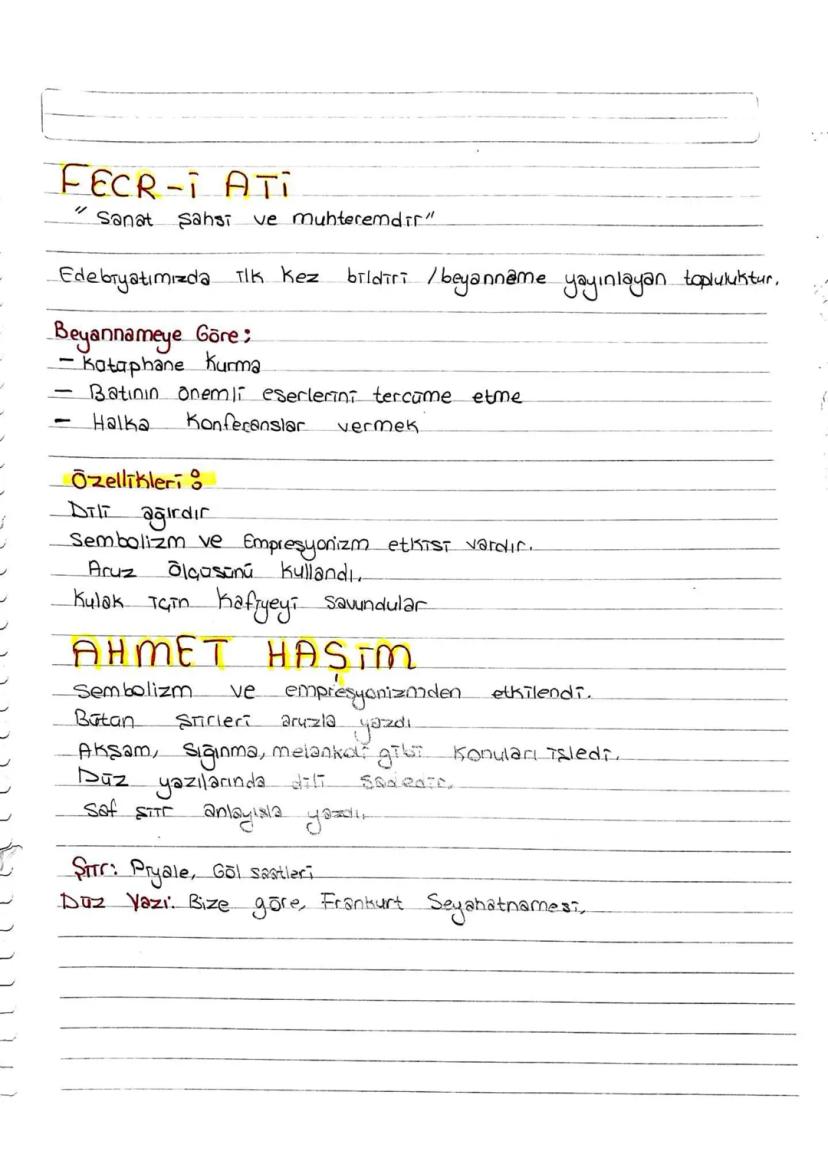 FECR-İ ATİ
"Sanat şahsi ve muhteremdir"
Edebiyatımızda ilk kez bildiri / beyanname yayınlayan topluluktur.
Beyannameye Göre:
- Kütüphane Kurma
- Batının önemli eserlerini tercüme etme
- Halka Konferanslar vermek
Özellikleri:
Dili ağırdır
Sembolizm ve Empresyonizm etkisi vardır.
Aruz Ölçüsünü Kullandı.
Kulak için Kafiyeyi savundular
AHMET HAŞİM
Sembolizm ve empresyonizmden etkilendi.
Bütün şiirleri aruzla yazdı
Akşam, Sığınma, melankoli gibi Konuları işledi.
Düz yazılarında dili sadedir.
Saf şiir anlayışla yazdı.
Şiir: Piyale, Göl saatleri
Düz Yazı: Bize göre, Frankurt Seyahatnamesi,